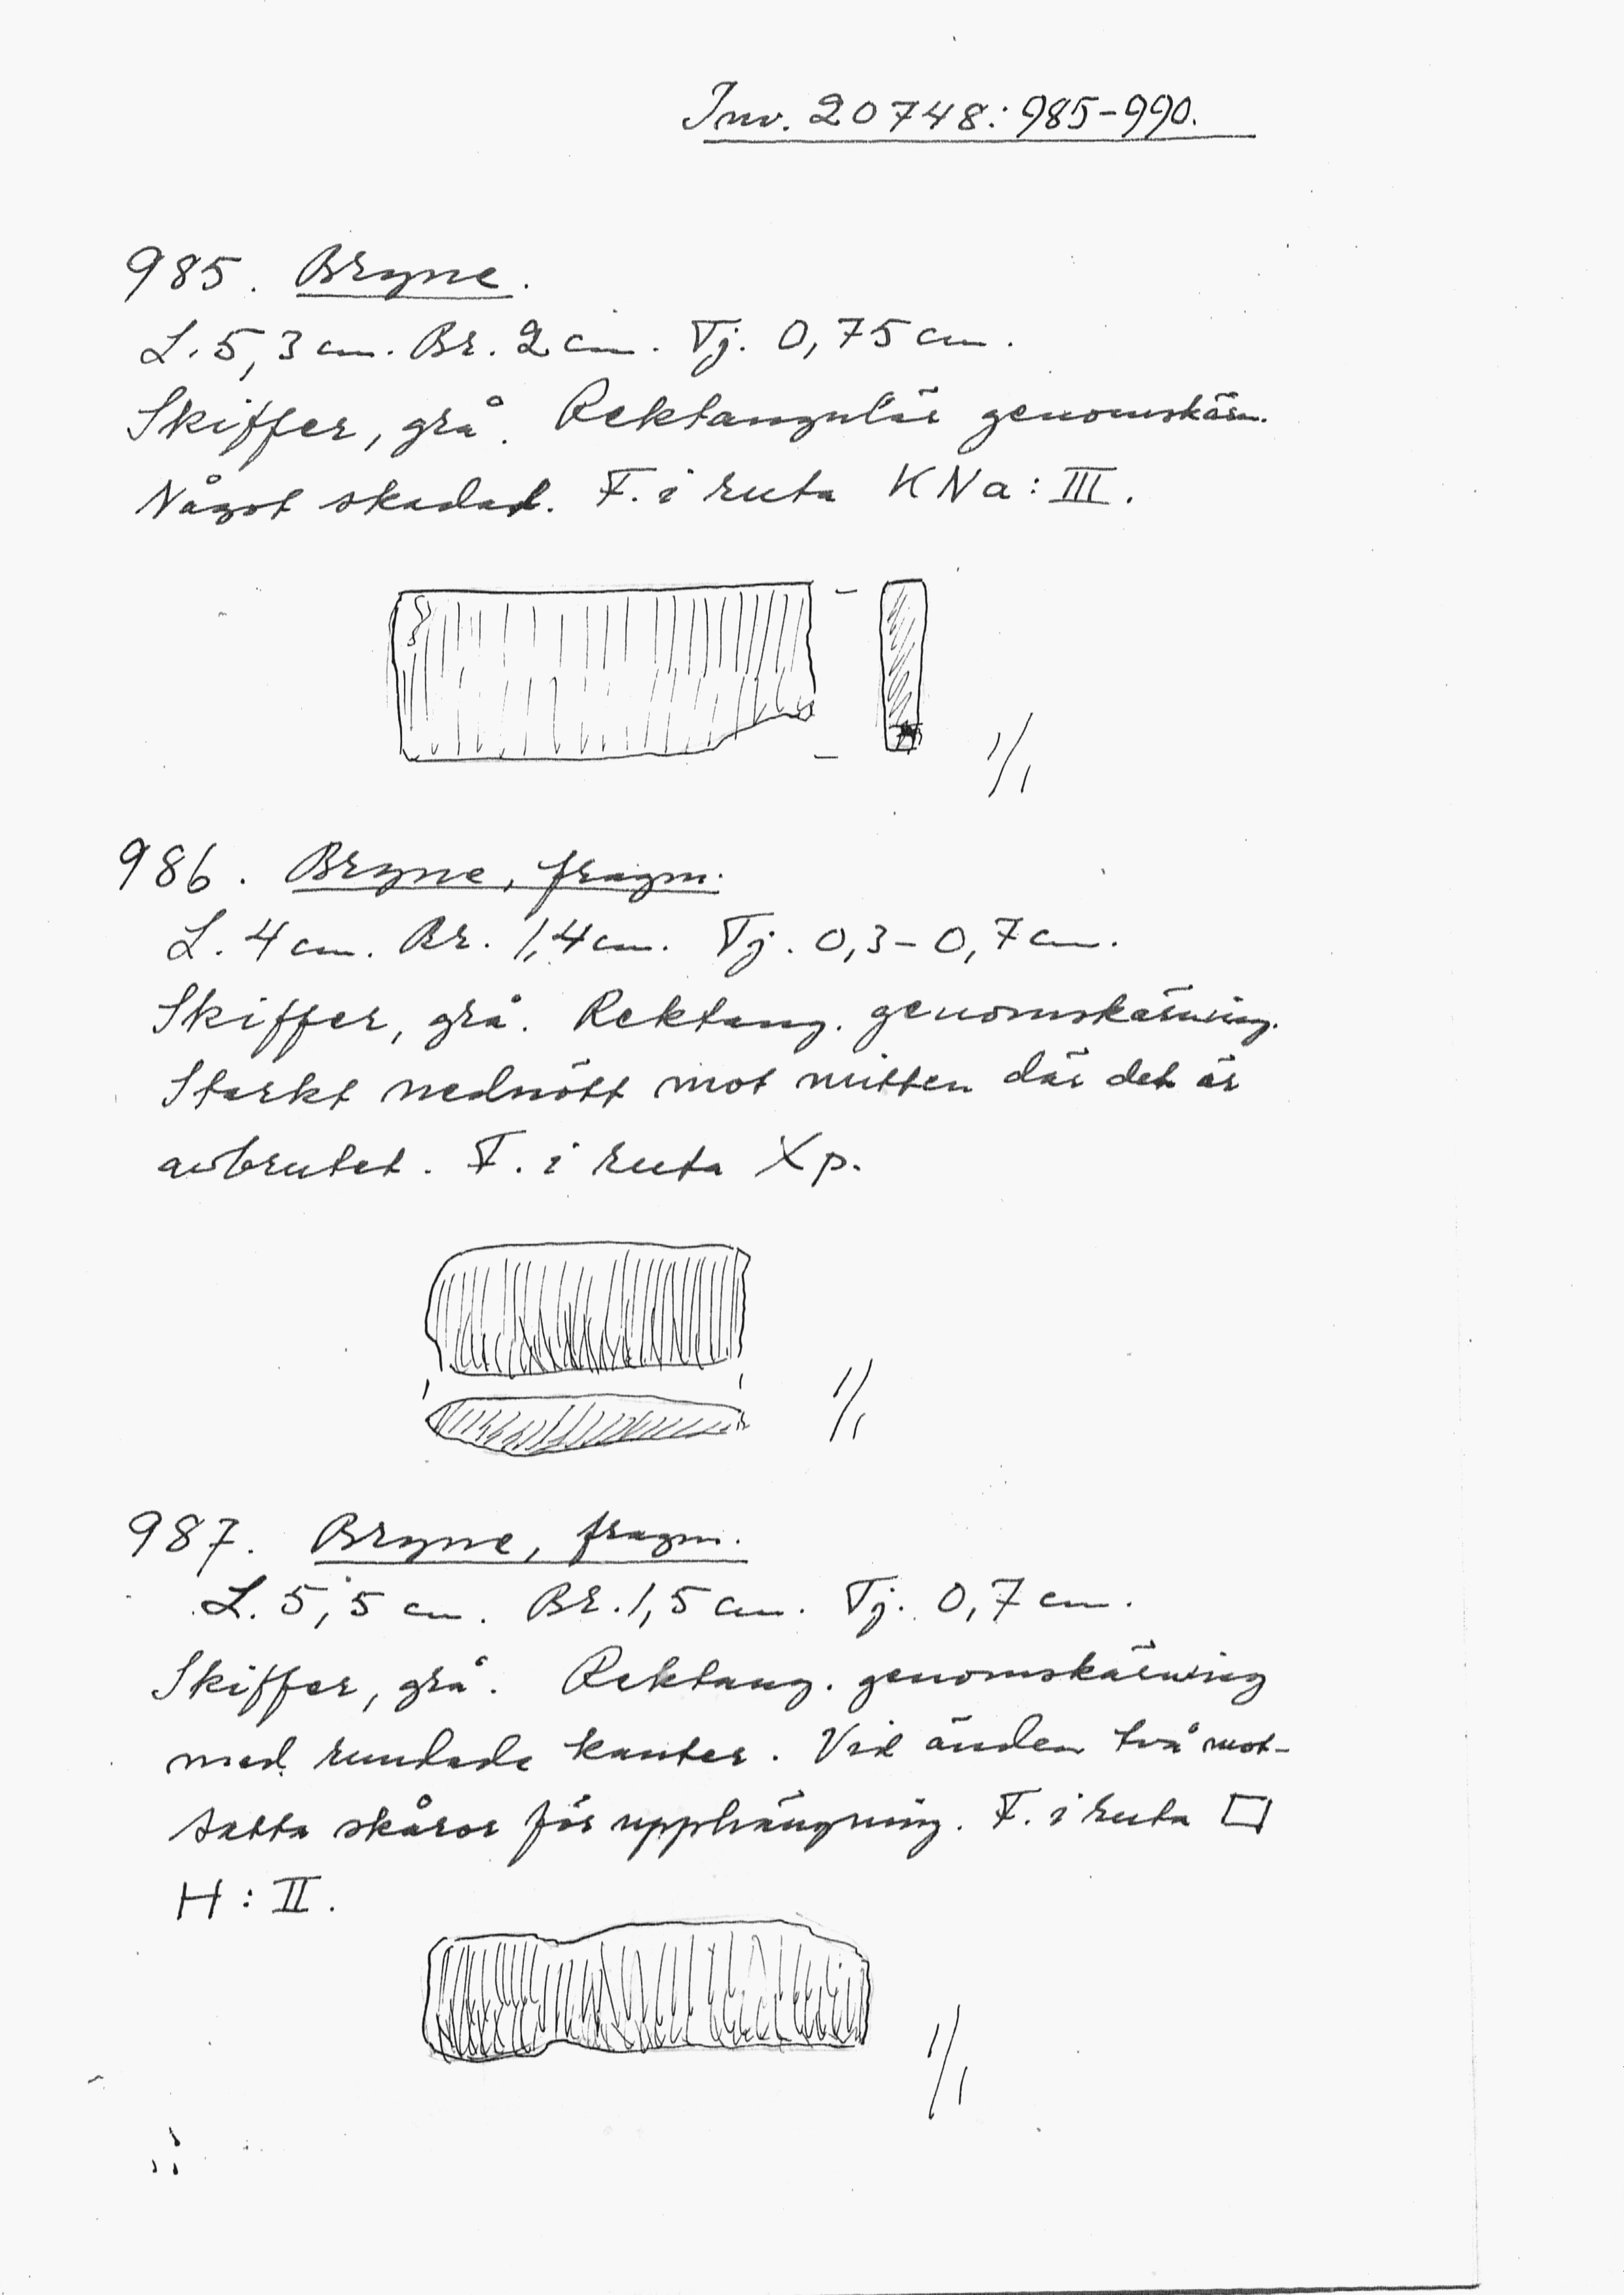 Inv. 20748:985-990.
985. Bryne.
L. 5,3 cm. Br. 2 cm. Tj. 0,75 cm.
Skiffer, grå. Rektangulär genomskärn.
Något skadad. F. i ruta KNa: III.
1/1
986. Bryne, fragm.
L. 4 cm. Br. 1,4 cm. Tj. 0,3-0,7 cm.
Skiffer, grå. Rektang. genomskärning.
Starkt nednött mot mitten där det är
avbrutet. F. i ruta Xp.
1/1
987. Bryne, fragm.
L. 5,5 cm. Br. 1,5 cm. Tj. 0,7 cm.
Skiffer, grå. Rektang. genomskärning
med rundade kanter. Vid änden två mot-
satta skåror för upphängning. F. i ruta □
H: II.
1/1